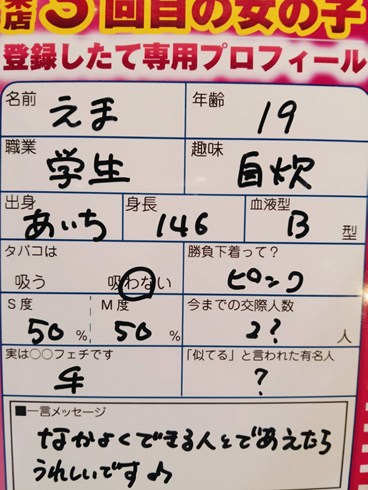 店5回目の女の子
登録したて専用プロフィール
名前 えま 年齢 19
職業 学生 趣味 自炊
出身 あいち 身長 146 血液型 B 型
タバコは 勝負下着って?
吸う 吸わない ピンク
S度 50% M度 50% 今までの交際人数 2? 人
実は○○フェチです 手 「似てる」と言われた有名人 ?
■一言メッセージ
なかよくできる人とであえたら
うれしいです♪